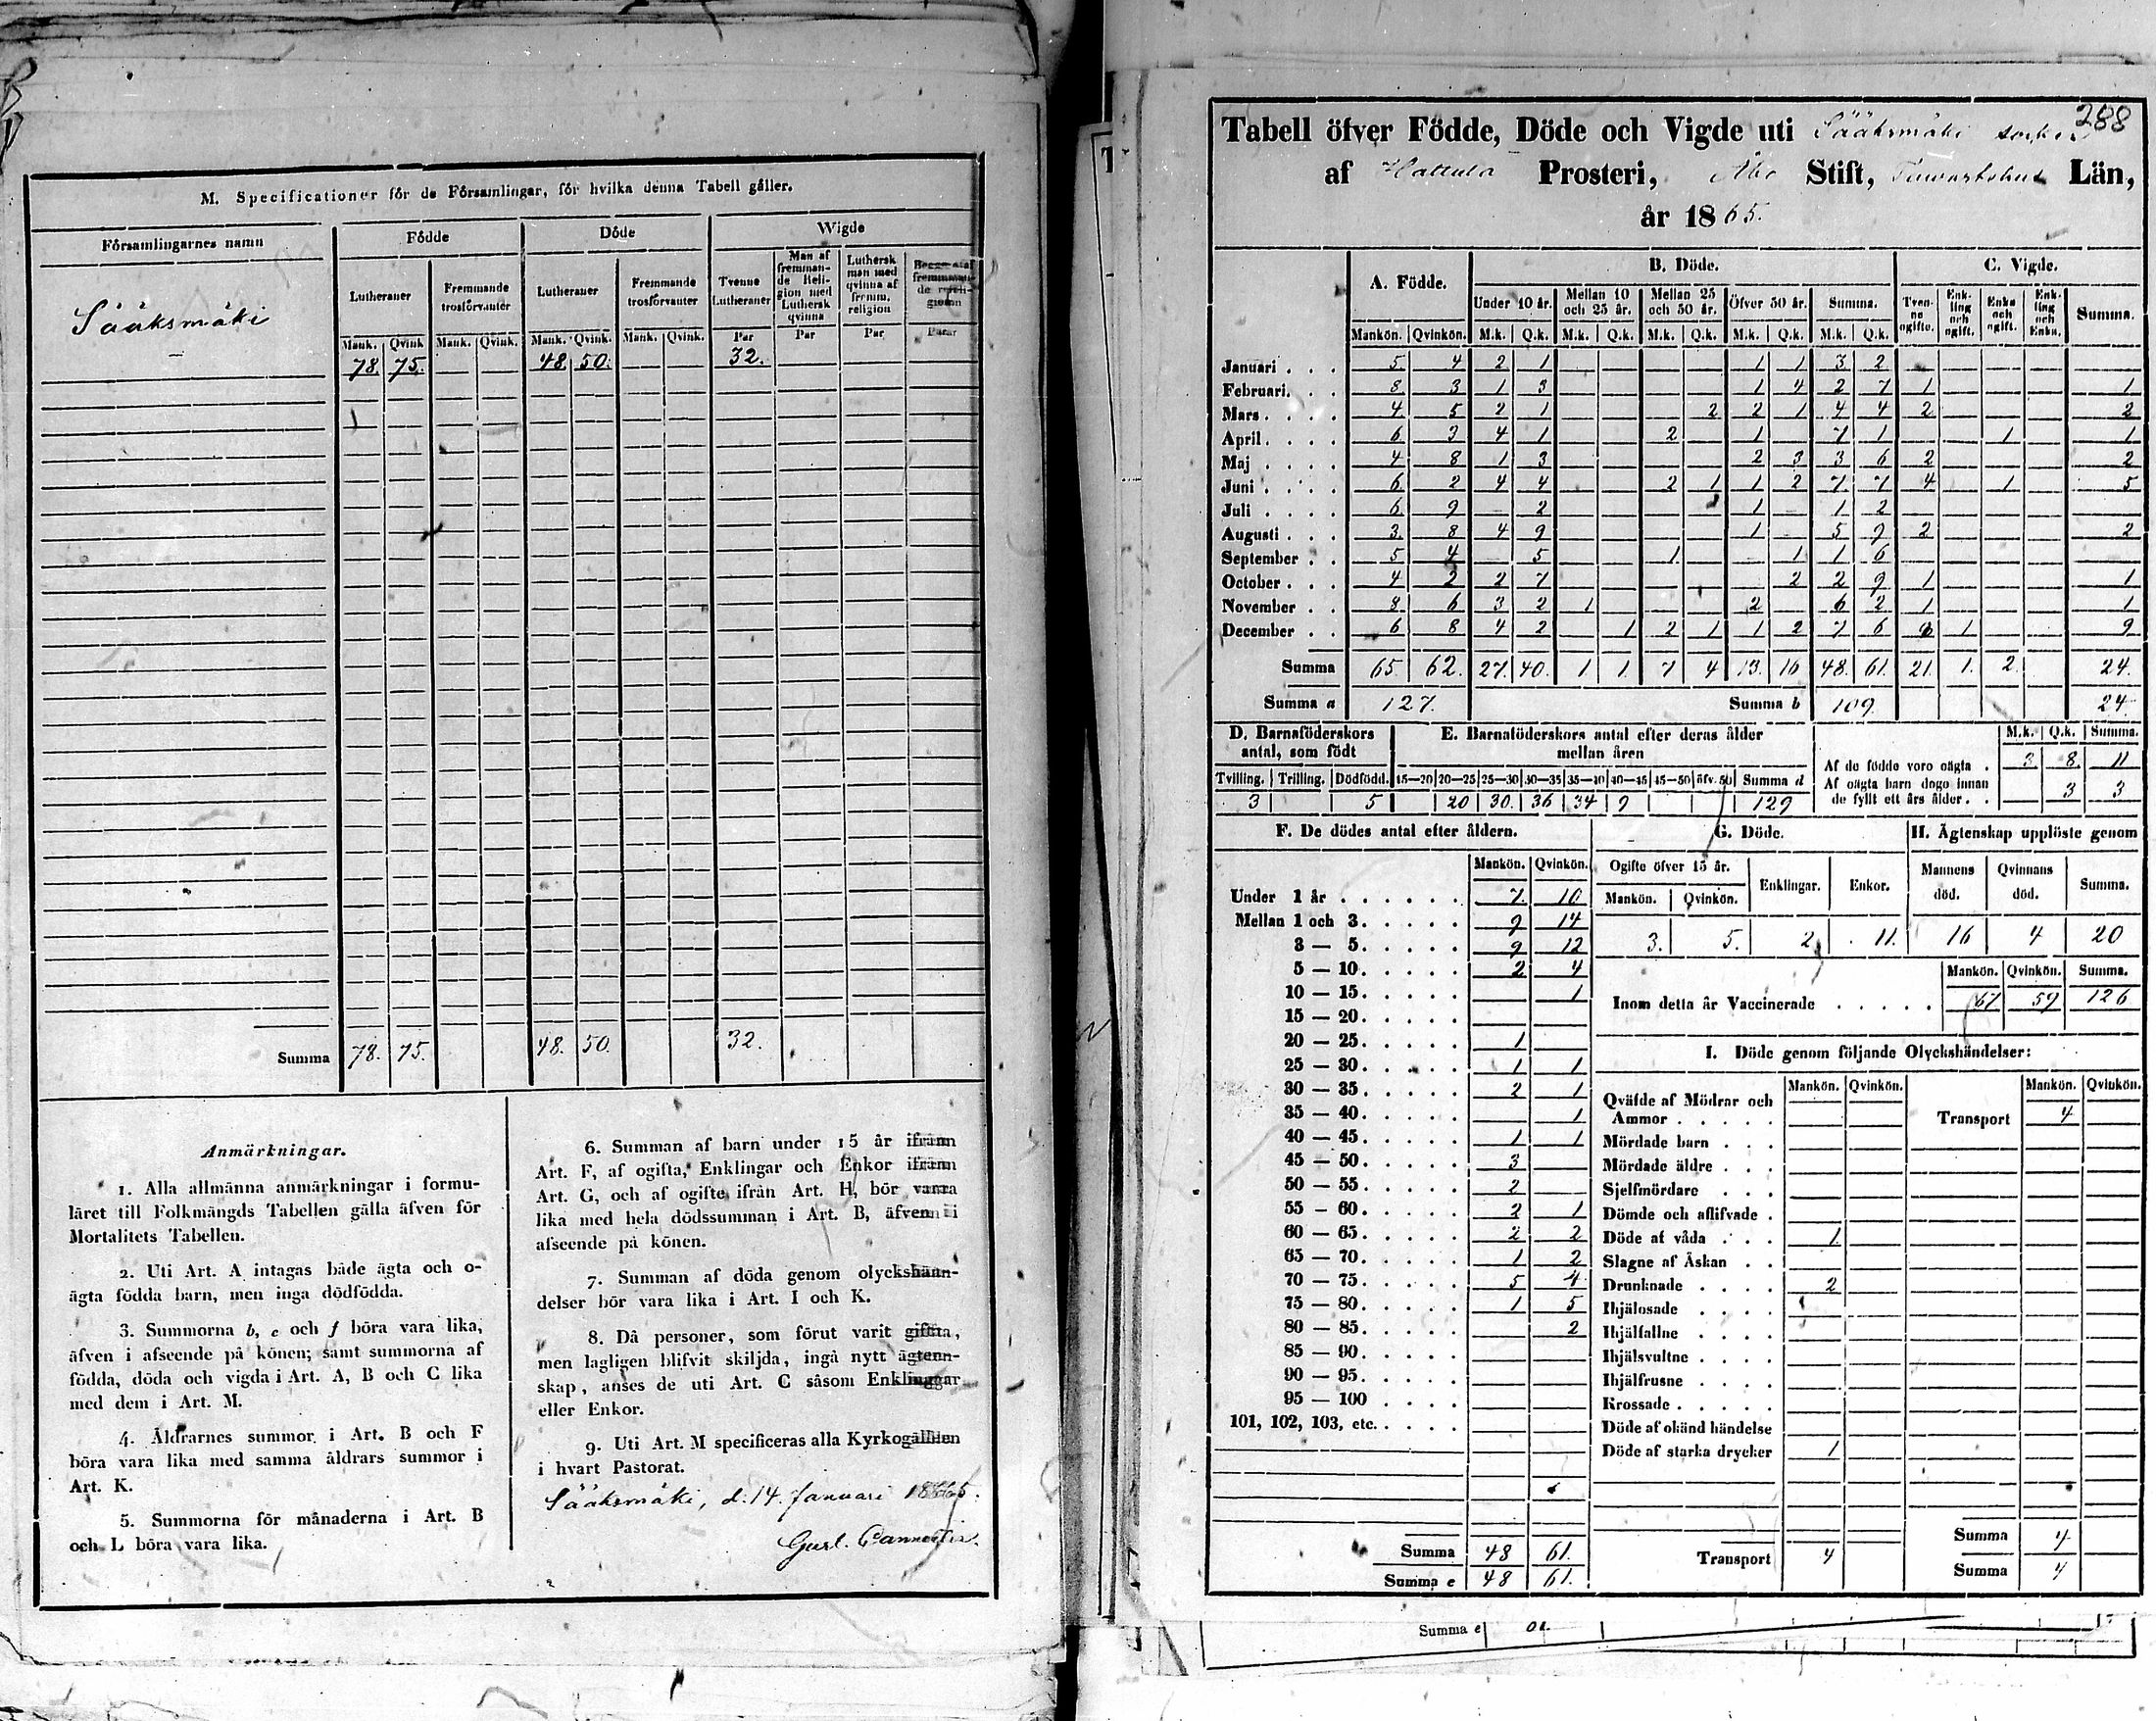 M. Specificationer för de Församlingar, för hvilka denna Tabell gäller.
Församlingarnes namn | Födde | Döde | Wigde
Lutheraner | Fremmande trosförvanter | Lutheraner | Fremmande trosförvanter | Tvenne Lutheraner | Man af fremman-de Reli-gion med Luthersk qvinna | Luthersk man med qvinna af fremm. religion
Mank. | Qvink | Mank. | Qvink. | Mank. | Qvink. | Mank. | Qvink. | Par | Par | Par | Parar
Sääksmäki | 78. | 75. | 48. | 50. | 32.
Summa | 78. | 75. | 48. | 50. | 32.
Anmärkningar.
1. Alla allmänna anmärkningar i formu-
läret till Folkmängds Tabellen gälla äfven för
Mortalitets Tabellen.
2. Uti Art. A intagas både ägta och o-
ägta födda barn, men inga dödfödda.
3. Summorna b, e och f böra vara lika,
äfven i afseende på könen; samt summorna af
födda, döda och vigda i Art. A, B och C lika
med dem i Art. M.
4. Åldrarnes summor i Art. B och F
böra vara lika med samma åldrars summor i
Art. K.
5. Summorna för månaderna i Art. B
och L böra vara lika.
6. Summan af barn under 15 år ifrån
Art. F, af ogifta, Enklingar och Enkor ifrån
Art. G, och af ogifte ifrån Art. H, bör vara
lika med hela dödssumman i Art. B, äfven i
afseende på könen.
7. Summan af döda genom olyckshän-
delser bör vara lika i Art. I och K.
8. Då personer, som förut varit gifta,
men lagligen blifvit skiljda, ingå nytt ägten-
skap, anses de uti Art. C såsom Enklingar
eller Enkor.
9. Uti Art. M specificeras alla Kyrkogällen
i hvart Pastorat.
Sääksmäki, d. 14. Januari
288
Tabell öfver Födde, Döde och Vigde uti Sääksmäki socken
af Hattula Prosteri, Åbo Stift, Tawastehus Län,
år 1865.
A. Födde. | B. Döde. | C. Vigde.
Under 10 år. | Mellan 10 och 25 år. | Mellan 25 och 50 år. | Öfver 50 år. | Summa. | Tven-ne ogifte. | Enk-ling och ogift. | Enka och ogift. | Enk-ling och Enka. | Summa.
Mankön. | Qvinkön. | M.k. | Q.k. | M.k. | Q.k. | M.k. | Q.k. | M.k. | Q.k. | M.k. | Q.k.
Januari . . . 5. | 4 | 2 | 1 | 1 | 1 | 3 | 2
Februari. . . 8 | 3 | 1 | 3 | 1 | 4 | 2 | 7 | 1 | 1
Mars . . . . 4 | 5 | 2 | 1 | 2 | 2 | 1 | 4 | 4 | 2 | 2
April . . . . 6 | 3 | 4 | 1 | 2 | 1 | 7 | 1 | 1 | 1
Maj . . . . 4 | 8 | 1 | 3 | 2 | 3 | 3 | 6 | 2 | 2
Juni . . . . 6 | 2 | 4 | 4 | 2 | 1 | 1 | 2 | 7 | 7 | 4 | 1 | 5
Juli . . . . 6 | 9 | 2 | 1 | 1 | 2
Augusti . . . 3 | 8 | 4 | 9 | 1 | 5 | 9 | 2 | 2
September . . 5 | 4 | 5 | 1 | 1 | 1 | 6
October . . . 4 | 2 | 2 | 7 | 2 | 2 | 9 | 1 | 1
November . . 8 | 6 | 3 | 2 | 1 | 2 | 6 | 2 | 1 | 1
December . . 6 | 8 | 4 | 2 | 1 | 2 | 1 | 1 | 2 | 7 | 6 | 1 | 9
Summa 65. | 62. | 27. | 40. | 1 | 1. | 7 | 4 | 13. | 16 | 48. | 61. | 21. | 1. | 2. | 24.
Summa a 127. | Summa b 109. | 24
D. Barnaföderskors antal, som födt | E. Barnaföderskors antal efter deras ålder mellan åren | M.k. | Q.k. | Summa.
Tvilling. | Trilling. | Dödfödd. | 15—20 | 20—25 | 25—30 | 30—35 | 35—40 | 40—45 | 45—50 | öfv. 50 | Summa d
3 | 5 | 20 | 30. | 36 | 34 | 9 | 129
Af de födde voro oägta . 3 | 8. | 11
Af oägta barn dogo innan
de fyllt ett års ålder . . 3 | 3
F. De dödes antal efter åldern.
Mankön. | Qvinkön.
Under 1 år . . . . . . 7. | 10
Mellan 1 och 3. . . . . 9 | 14
3 — 5. . . . . 9 | 12
5 — 10. . . . . 2 | 4
10 — 15. . . . . 1
15 — 20. . . . .
20 — 25. . . . . 1
25 — 30. . . . . 1 | 1
30 — 35. . . . . 2 | 1
35 — 40. . . . . 1
40 — 45. . . . . 1 | 1
45 — 50. . . . . 3
50 — 55. . . . . 2
55 - 60. . . . . 2 | 1
60 — 65. . . . . 2 | 2
65 — 70. . . . . 1 | 2
70 — 75. . . . . 5 | 4
75 — 80. . . . . 1 | 5
80 — 85. . . . . 2
85 — 90. . . . .
90 — 95. . . . .
95 — 100 . . . .
101, 102, 103, etc. . . . .
Summa 48 | 61.
Summa e 48 | 61.
G. Döde.
Ogifte öfver 15 år. | Enklingar. | Enkor.
Mankön. | Qvinkön.
3. | 5. | 2. | 11.
H. Ägtenskap upplöste genom
Mannens död. | Qvinnans död. | Summa.
16 | 4 | 20
Mankön. | Qvinkön. | Summa.
Inom detta år Vaccinerade . . . . . 67 | 59 | 126
I. Döde genom följande Olyckshändelser:
Mankön. | Qvinkön. | Mankön. | Qvinkön.
Qväfde af Mödrar och
Ammor . . . . . | Transport 4
Mördade barn . . .
Mördade äldre . . .
Sjelfmördare . . .
Dömde och aflifvade .
Döde af våda . . . 1.
Slagne af Åskan . .
Drunknade . . . . 2
Ihjälosade . . . .
Ihjälfallne . . . .
Ihjälsvultne . . . .
Ihjälfrusne . . . .
Krossade . . . . .
Döde af okänd händelse
Döde af starka drycker 1
Transport 4 | Summa 4
Summa 4
Summa e